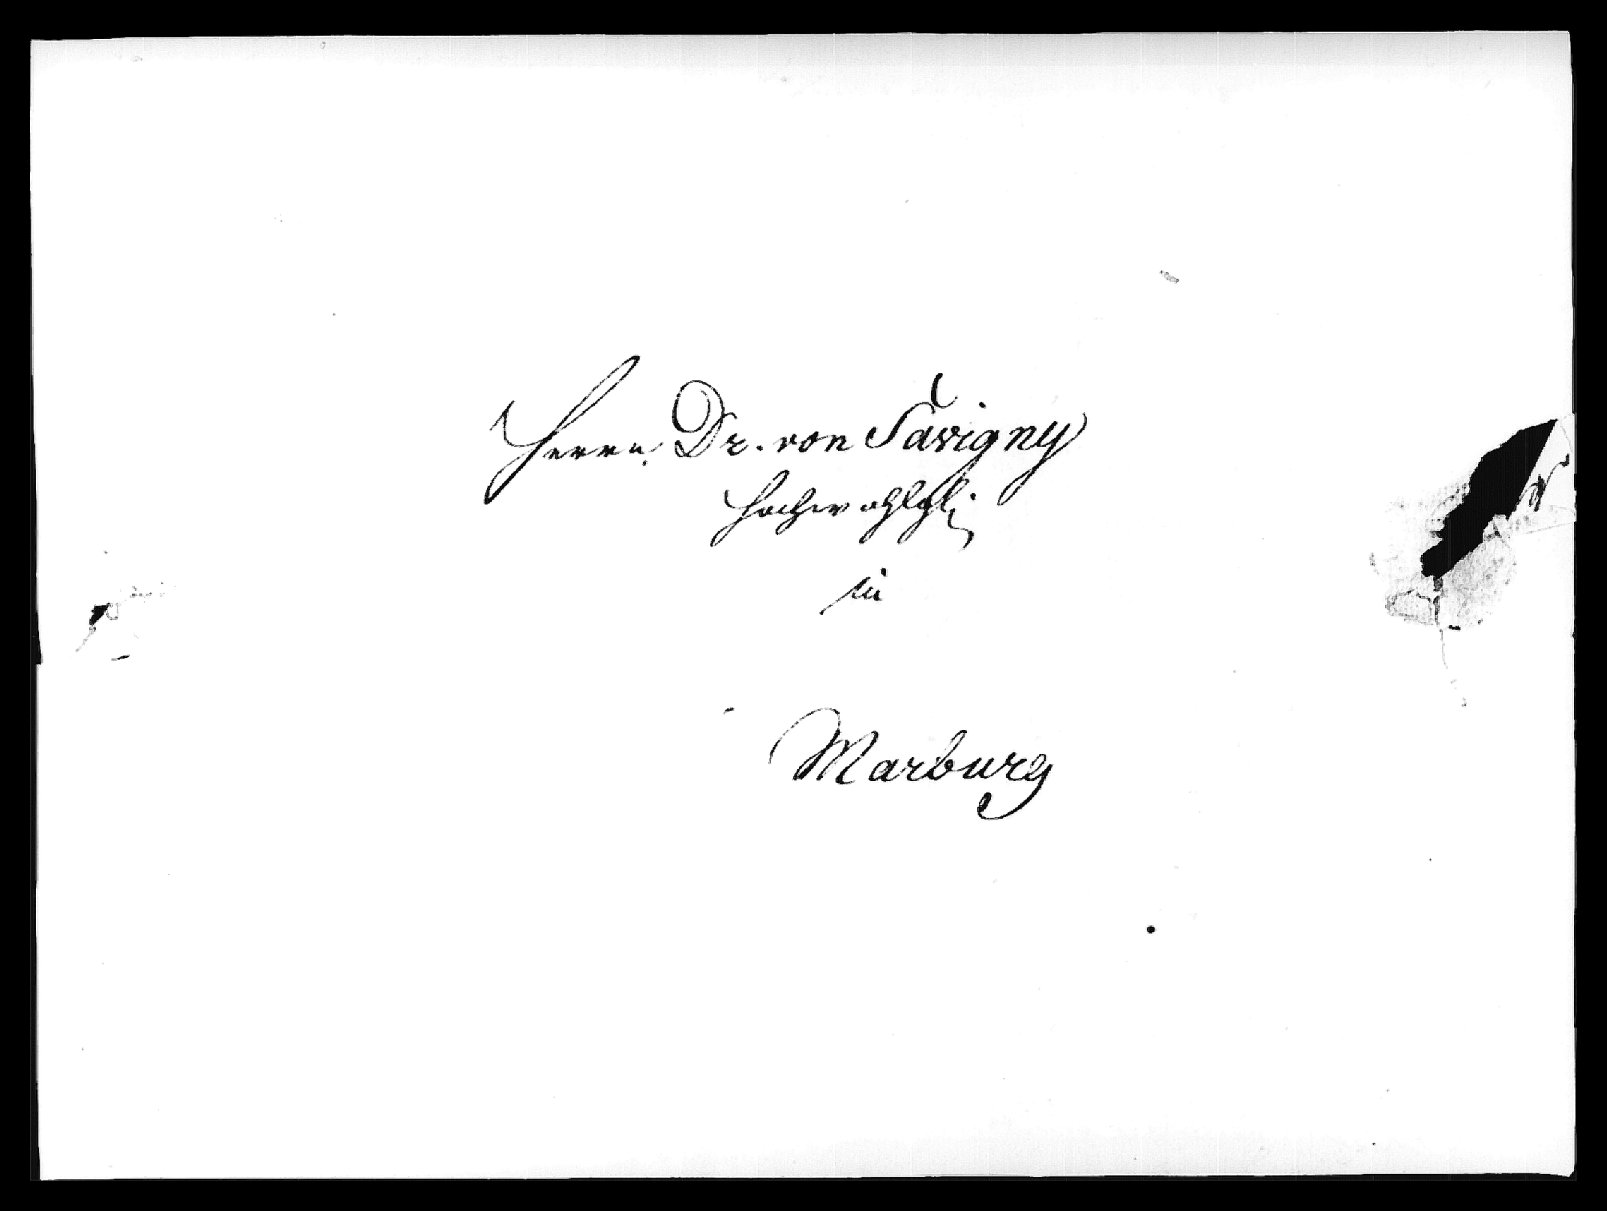 Herrn Dr. von Savigny
Hochwohlgb.
in
Marburg